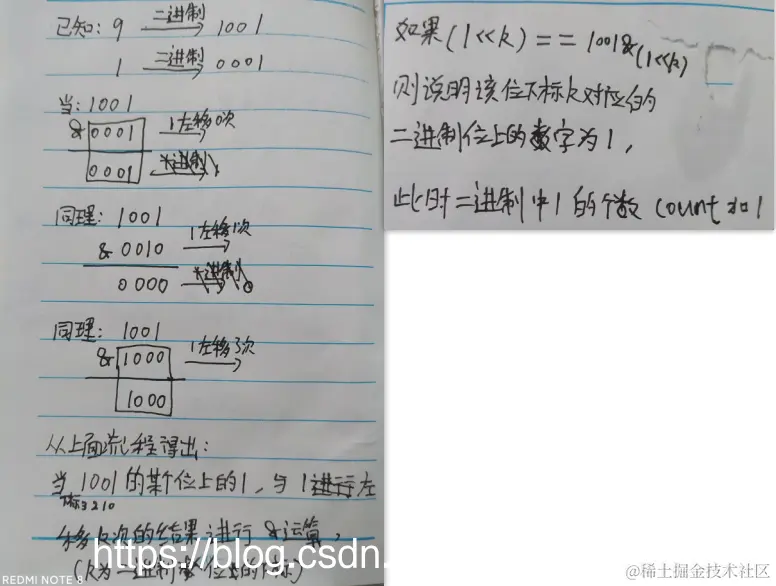 已知: 9 二进制 1001
1 二进制 0001
当: 1001
& 0001 1左移0次
0001
同理: 1001
& 0010 1左移1次
0000
同理: 1001
& 1000 1左移3次
1000
从上面流程得出:
当 1001 的某个位上的1, 与 1进行左
下标3210
移k次的结果进行 &运算,
(k为二进制
REDMI NOTE 8
https://blog.csdn.
如果(1<<k) == 1001&(1<<k)
则说明该位下标k对应的
二进制位上的数字为1,
此时二进制中1的个数 count 加1
@稀土掘金技术社区